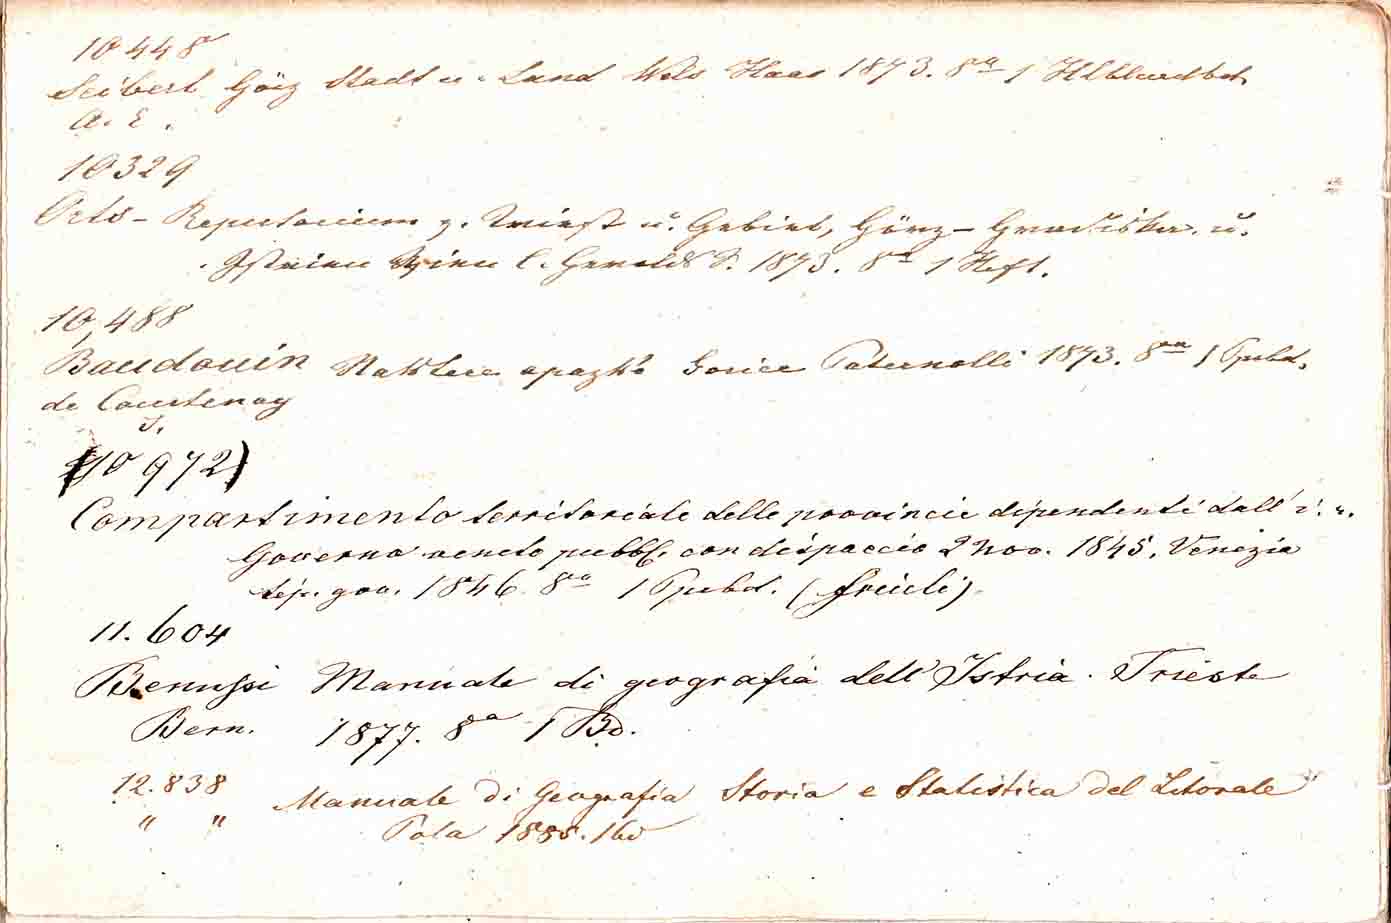 10448
Seibert Görz Stadt u. Land Wels Haas 1873. 8º 1 Hlblwdbd.
A. E.
10329
Orts- Repertorium v. Triest u. Gebiet, Görz- Gradiska. u.
Istrien Wien C. Gerolds S. 1873. 8º 1 Heft.
10,488
Baudouin Gorice Paternolli 1873. 8º 1 Ppbd.
de Courtenay
J.
(10972)
Compartimento territoriale delle provincie dipendenti dall' i. r.
Governo veneto pubbl. con dispaccio 2 nov. 1845. Venezia
tip. gov. 1846. 8º 1 Ppbd. (Friuli)
11.604
Benussi Manuale di geografia dell' Istria. Trieste
Bern. 1877. 8º 1 Bd.
12.838 Manuale di Geografia Storia e Statistica del Litorale
" " Pola 1885. 16º